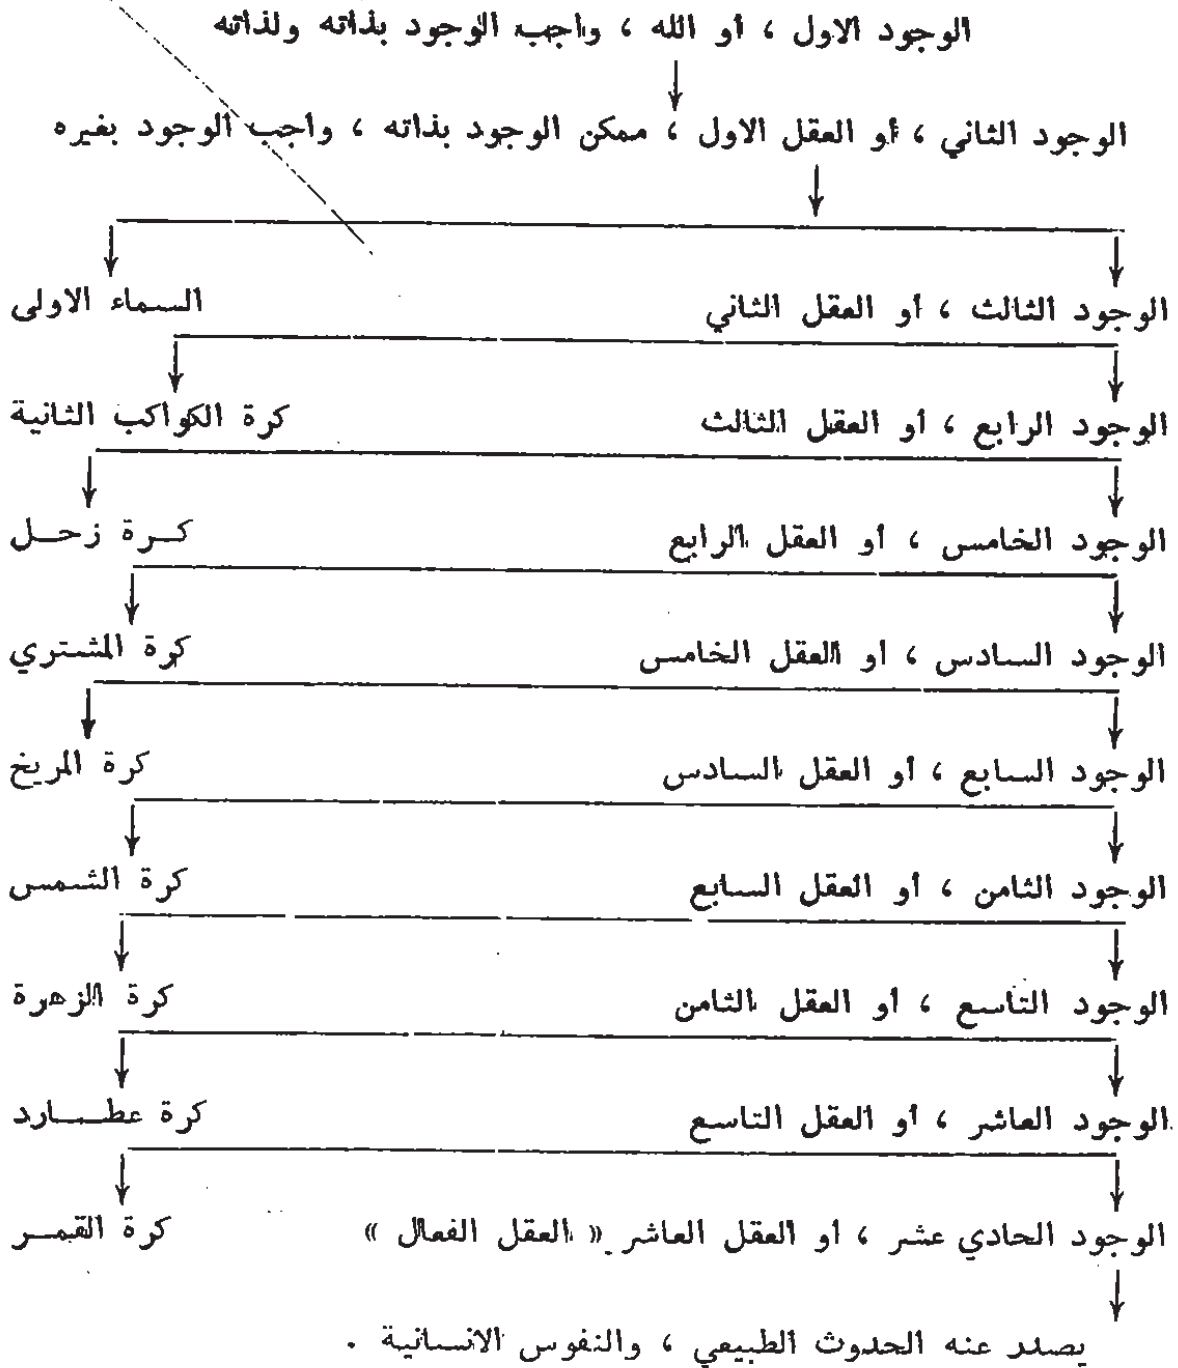 الوجود الاول ، أو الله ، واجب الوجود بذاته ولذاته
الوجود الثاني ، أو العقل الاول ، ممكن الوجود بذاته ، واجب الوجود بغيره
الوجود الثالث ، أو العقل الثاني السماء الاولى
الوجود الرابع ، أو العقل الثالث كرة الكواكب الثانية
الوجود الخامس ، أو العقل الرابع كـرة زحـل
الوجود السادس ، أو العقل الخامس كرة المشتري
الوجود السابع ، أو العقل السادس كرة المريخ
الوجود الثامن ، أو العقل السابع كرة الشمس
الوجود التاسع ، أو العقل الثامن كرة الزهرة
الوجود العاشر ، أو العقل التاسع كرة عطـــارد
الوجود الحادي عشر ، أو العقل العاشر « العقل الفعال » كرة القمـر
يصدر عنه الحدوث الطبيعي ، والنفوس الانسانية .